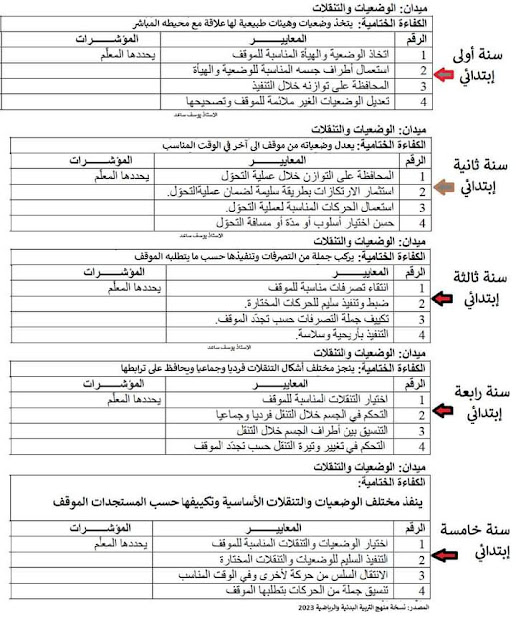 ميدان: الوضعيات والتنقلات
الكفاءة الختامية: يتخذ وضعيات وهيئات طبيعية لها علاقة مع محيطه المباشر
الرقم المعاييــــــر المؤشــــرات
1 اتخاذ الوضعية والهيأة المناسبة للموقف يحددها المعلّم
2 استعمال أطراف جسمه المناسبة للوضعية والهيأة
3 المحافظة على توازنه خلال التنفيذ
4 تعديل الوضعيات الغير ملائمة للموقف وتصحيحها
سنة أولى
إبتدائي
الاستاذ يوسف ساعد
ميدان: الوضعيات والتنقلات
الكفاءة الختامية: يعدل وضعياته من موقف الى آخر في الوقت المناسب
الرقم المعاييــــــر المؤشــــرات
1 المحافظة على التوازن خلال عملية التحوّل يحددها المعلّم
2 استثمار الارتكازات بطريقة سليمة لضمان عمليةالتحوّل.
3 استعمال الحركات المناسبة لعملية التحوّل.
4 حسن اختيار أسلوب أو مدّة أو مسافة التحوّل
سنة ثانية
إبتدائي
الاستاذ يوسف ساعد
ميدان: الوضعيات والتنقلات
الكفاءة الختامية: يركب جملة من التصرفات وتنفيذها حسب ما يتطلبه الموقف
الرقم المعاييــــــر المؤشــــرات
1 انتقاء تصرفات مناسبة للموقف يحددها المعلّم
2 ضبط وتنفيذ سليم للحركات المختارة.
3 تكييف جملة التصرفات حسب تجدّد الموقف.
4 التنفيذ بأريحية وسلاسة.
سنة ثالثة
إبتدائي
الاستاذ يوسف ساعد
ميدان: الوضعيات والتنقلات
الكفاءة الختامية: ينجز مختلف أشكال التنقلات فرديا وجماعيا ويحافظ على ترابطها
الرقم المعاييــــــر المؤشــــرات
1 اختيار التنقلات المناسبة للموقف يحددها المعلّم
2 التحكم في الجسم خلال التنقل فرديا وجماعيا
3 التنسيق بين أطراف الجسم خلال التنقل
4 التحكم في تغيير وتيرة التنقل حسب تجدّد الموقف
سنة رابعة
إبتدائي
ميدان: الوضعيات والتنقلات
الكفاءة الختامية:
ينفذ مختلف الوضعيات والتنقلات الأساسية وتكييفها حسب المستجدات الموقف
الرقم المعاييــــــر المؤشــــرات
1 اختيار الوضعيات والتنقلات المناسبة للموقف يحددها المعلّم
2 التنفيذ السليم للوضعيات والتنقلات المختارة
3 الانتقال السلس من حركة لأخرى وفي الوقت المناسب
4 تنسيق جملة من الحركات بتطلبها الموقف
سنة خامسة
إبتدائي
المصدر: نسخة منهج التربية البدنية والرياضية 2023